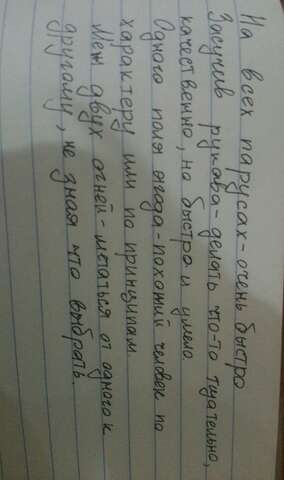 На всех парусах - очень быстро
Засучив рукава - делать что-то тщательно,
качественно, но быстро и умело
Одного поля ягода - похожий человек по
характеру или по принципам
Меж двух огней - метаться от одного к
другому, не зная что выбрать.